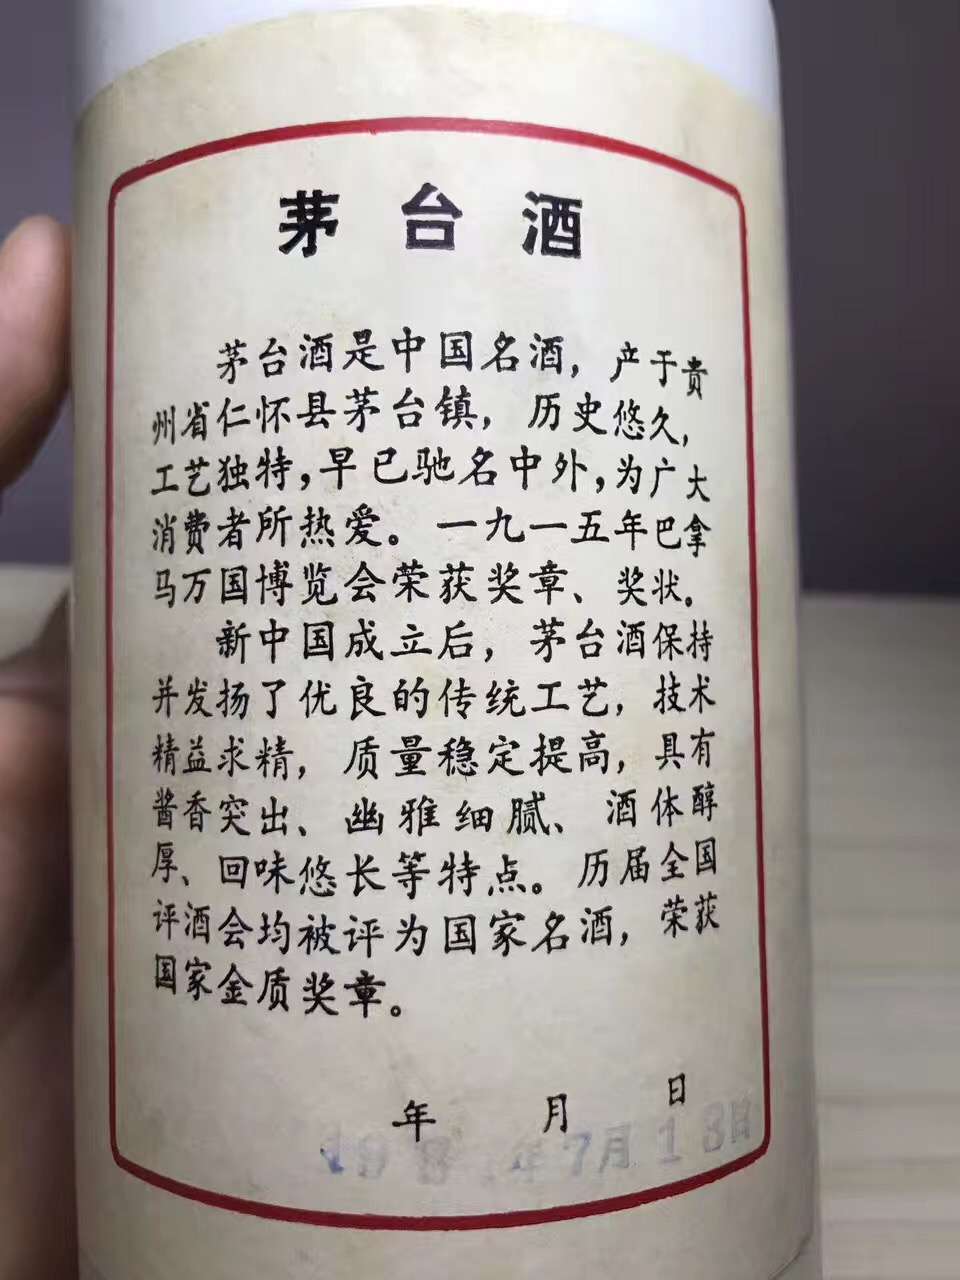 茅台酒
茅台酒是中国名酒，产于贵
州省仁怀县茅台镇，历史悠久，
工艺独特，早已驰名中外，为广大
消费者所热爱。一九一五年巴拿
马万国博览会荣获奖章、奖状。
新中国成立后，茅台酒保持
并发扬了优良的传统工艺，技术
精益求精，质量稳定提高，具有
酱香突出、幽雅细腻、酒体醇
厚、回味悠长等特点。历届全国
评酒会均被评为国家名酒，荣获
国家金质奖章。
年 月 日
年7月13日